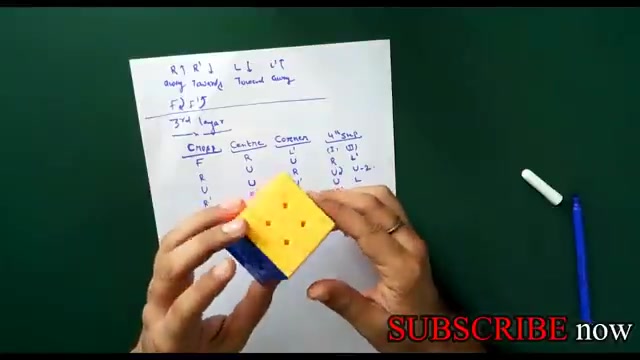 R↑ R' ↓ L ↓ L'↑
away Towards Toward away
F↓ F'↑
3rd layer
Cross Centre Corner 4th step
F R L' (I) (II)
R U U R L'
U U R U2 U-2
R' U L
SUBSCRIBE now